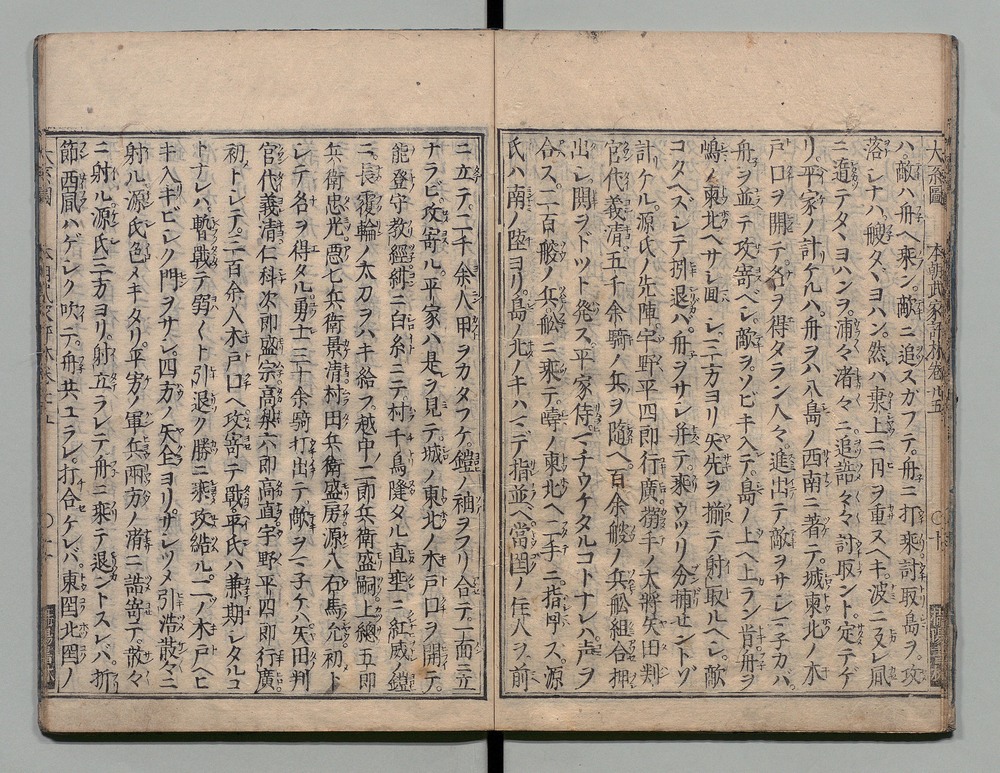 ハ、敵ハ舟ヘ乗ン。敵ニ追スガフテ。舟ニ打乗討取島ヲ。攻
落シナハ艘タヾヨハン。然ハ兼上ニ円ヲ重ヌヘキ。波ニ又レ風
ニ造テタヾヨハンヲ。浦々渚々ニ追詰々々討取ント定テゲ
リ。平家ノ計ケルハ。舟ヲハ八島ノ西南ニ著テ。城東北ノ木
戸口ヲ開テ。名ヲ得タラン人々。進出テ敵ヲサシ
舟ヲ並テ攻寄ベシ。敵ヲソビキ入テ。島ノ上ヘ上ラン時舟ヲ
嶋ノ東北ヘサシ回シ。三方ヨリ矢先ヲ揃テ射取ルヘシ。敵
コタヘズシテ引退ハ。舟ヲサシ并テ。乗ウツリ分捕セントゾ
計ケル。源氏ノ先陣宇野平四郎行廣搦手ノ大将矢田判
官代義清。五千余騎ノ兵ヲ随ヘ百余艘ノ兵舩組合押
出シ。閧ヲドツト発ス。平家待マチウケタルコトナレハ声ヲ
合ス。二百艘ノ兵舩ニ乗テ。嶋ノ東北ヘ二手ニ指向ス。源
氏ハ南ノ陸ヨリ。島ノ北ノキハマデ指並ベ。當国ノ住人ヲ。前
ニ立テ。二千余人甲ヲカタフケ。鎧ノ袖ヲフリ合テ。一面ニ立
ナラビ。攻寄ル。平家ハ是ヲ見テ。城ノ東北ノ木戸口ヲ開テ。
能登守教經。紺ニ白糸ニテ。村千鳥隆タル直垂ニ紅威鎧
ニ。長覆輪ノ太刀ヲハキ給フ。越中二郎兵衛盛嗣上總五郎
兵衛忠光悪七兵衛景清村田兵衛盛房源八右馬允初ト
シテ名ヲ得タル勇士三十余騎打出テ。敵ヲ一子ケハ矢田判
官代義清仁科次郎盛宗高梨六郎高直宇野平四郎行廣
初トシテ。三百余人木戸口ヘ攻寄テ戦。平氏ハ兼期シタルコ
トナレハ。暫戦テ弱々ト引退ク。勝ニ乗攻結ル。二ノ木戸ヘヒ
キ入キビシク門ヲサシ。四方ノ矢全ヨリサシツメ引浩散々ニ
射ル源氏色メキタリ。平家ノ軍兵両方ノ渚ニ詰寄テ。散々
ニ射ル源氏三方ヨリ。射立ラレテ舟ニ乗テ退ントスレバ。折
節西風ハゲシク吹テ。舟共ユラレ。打合ケレバ。東国北国ノ